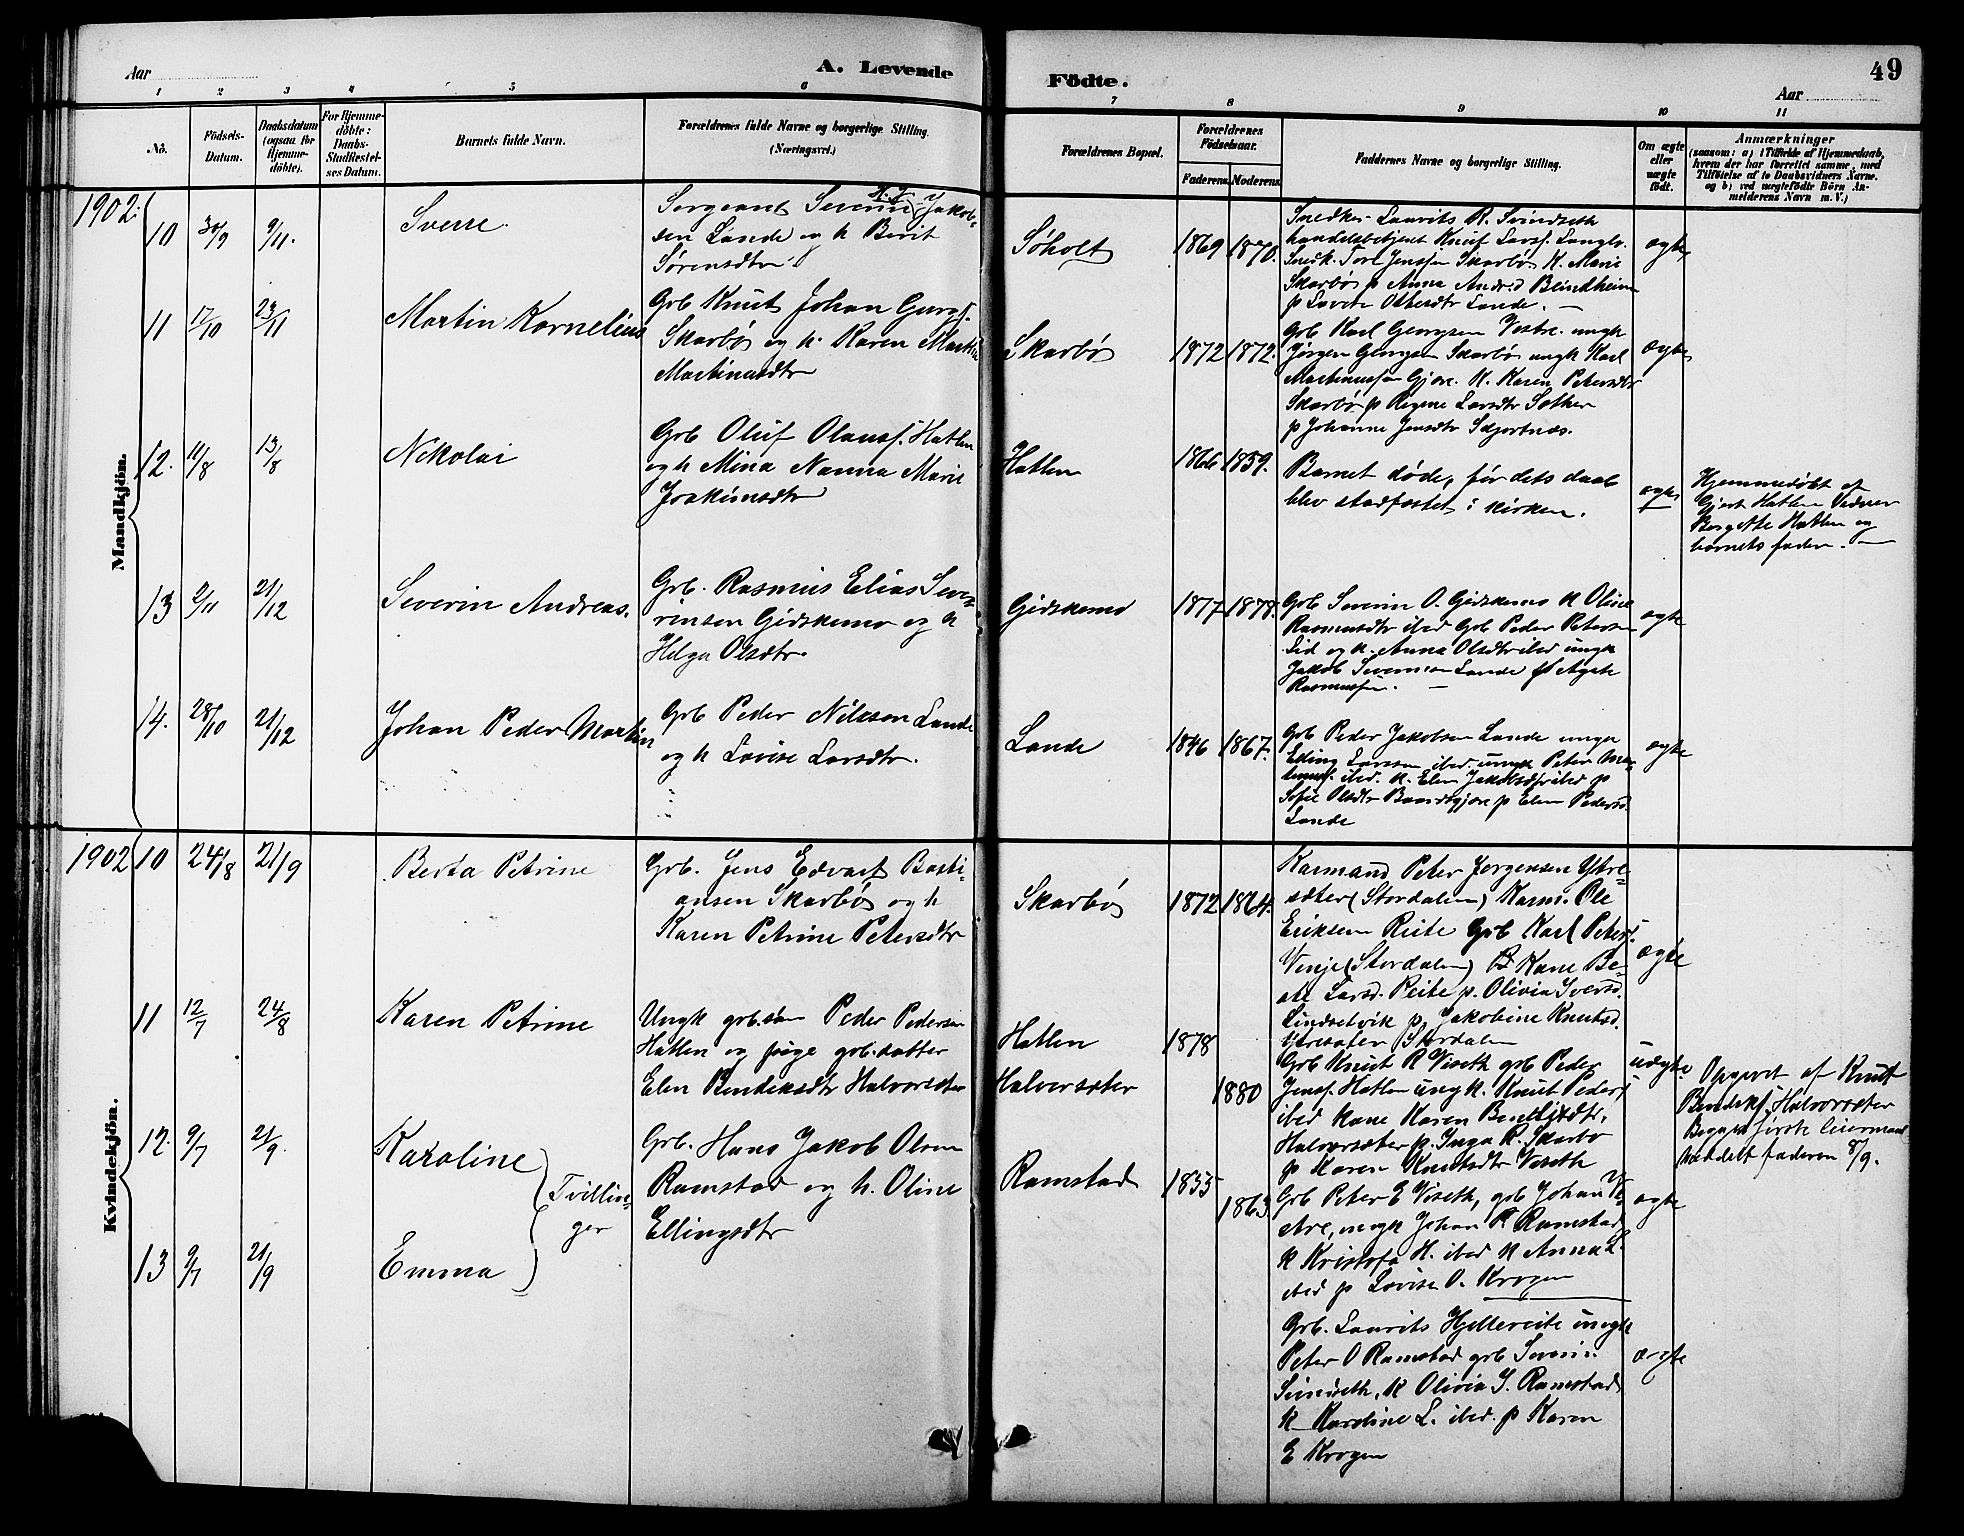 Aar
A. Levende
Födte.
49
Aar
1
2
3
4
5
6
7
8
9
10
11
No.
Födsels-
Datum.
Daabsdatum
(ogsaa for
Hjemme-
döbte).
For Hjemme-
döbte:
Daabs-
Stadfæstel-
ses Datum.
Barnets fulde Navn.
Forældrenes fulde Navne og borgerlige Stilling.
(Næringsvei.)
Forældrenes Bopæl.
Forældrenes
Födselsaar.
Faderens.
Moderens.
Faddernes Navne og borgerlige Stilling.
Om ægte
eller
uægte
födt.
Anmærkninger
(saasom: a) i Tilfælde af Hjemmedaab,
hvem der har forrettet samme, med
Tilföielse af to Daabsvidners Navne,
og b) ved uægtefödte Börn An-
melderens Navn m. V.)
Mandkjön.
1902.
10
30/9
9/11.
Sverre.
Sergeant Severin Jakob-
sen Lande og h Berit
Sørensdtr
Søholt
1869
1870.
Snedker Laurits R. Svindseth
handelsbetjent Knut Larsf.
Snedk. Tore Jensen Skarbø K. Marie
Skarbø p Anna Blindheim
p Lovise Ottesdtr Lande. —
ægte
11
17/10
23/11
Martin Kornelius
Grb Knut Johan Georgf.
Skarbø og h. Karen
Martinusdtr
Skarbø
1872
1872.
Grb Karl Georgsen Vestre. ungk
Jørgen Georgsen Skarbø ungk Karl
Martinussen Gjøre. K. Karen Petersdtr
Skarbø p Regine Larsdtr
p Johanne Jensdtr Skjortnæs.
ægte
12.
11/8
13/8
Nikolai
Grb Oluf Olausf. Hatlen
og h Mina Nanna Marie
Joakimsdtr
Hatlen
1866
1859.
Barnet døde, før dets daab
blev stadfæstet i kirken.
ægte
Hjemmedøbt af
Gjert Hatlen Vidner
Hatlen og
barnets fader. —
13
2/11
21/12
Severin Andreas.
Grb. Rasmus Elias Seve-
rinsen Gidskemo og h
Helga Olsdtr.
Gidskemo
1877
1878.
Grb Severin O. Gidskemo K Oline
Rasmusdtr ibed Grb Peder Petersen
Lid og k. Anna Olsdtr ibed ungk
Jakob Severinsen Lande
—
ægte
14.
28/10
21/12
Johan Peder Martin
Grb Peder Nilsson Lande
og h Lovise Larsdtr.
Lande
1846
1867.
Grb Peder Jakobsen Lande ungk
Larsen ibed. ungk Peter
ibed. K. Elen Jakobsdtr ibed p
Sofie Olsdtr p Elen Pedersd.
Lande
ægte
Kvindekjön.
1902
10
24/8
21/9
Berta Petrine
Grb. Jens Edvart Basti-
ansen Skarbø og h
Karen Petrine Petersdtr
Skarbø
1872
1864.
Karmand Peter Jørgensen Ytre-
sæter (Stordalen) Karm. Ole
Eriksen Reite Grb Karl Petersf.
Vinje (Stordalen) Kone Be-
ate Larsd. Reite p. Olivia Iversd.
Lindsetvik p. Jakobine Knutsd.
Ytresæter Stordalen
ægte
11
12/7
24/8
Karen Petrine
Ungk grb.søn Peder Pedersen
Hatlen og pige grb.datter
Elen Bendeksdtr Halvorsæter
Hatlen
Halvorsæter
1878
1880
Grb Knut R Viseth grb Peder
Jensf. Hatlen ungk. Knut Pedersf
ibed kone Karen
Halvorsæter p. Inga R. Skarbø
p Karen Knutsdtr Viseth
uægte
Opgivet af Knut
Bendeksf. Halvorsæter
Begges første leiermaal
faderen 8/9.
12.
9/7
21/9.
Karoline
Tvillin-
ger
Grb. Hans Jakob Olsen
Ramstad og h. Oline
Ellingsdtr
Ramstad
1855
1863
Grb Peter E Viseth, grb Johan Ve-
stre, ungk Johan P. Ramstad
K Kristofa H. ibed K Anna L.
ibed p Lovise O. Krogen
ægte
13
9/7
21/9
Emma
Grb. Laurits Hjellereite ungk
Peter O Ramstad grb Severin
Svindseth, K Olivia J. Ramstad
K Karoline L. ibed. p Karen
E Krogen
ægte